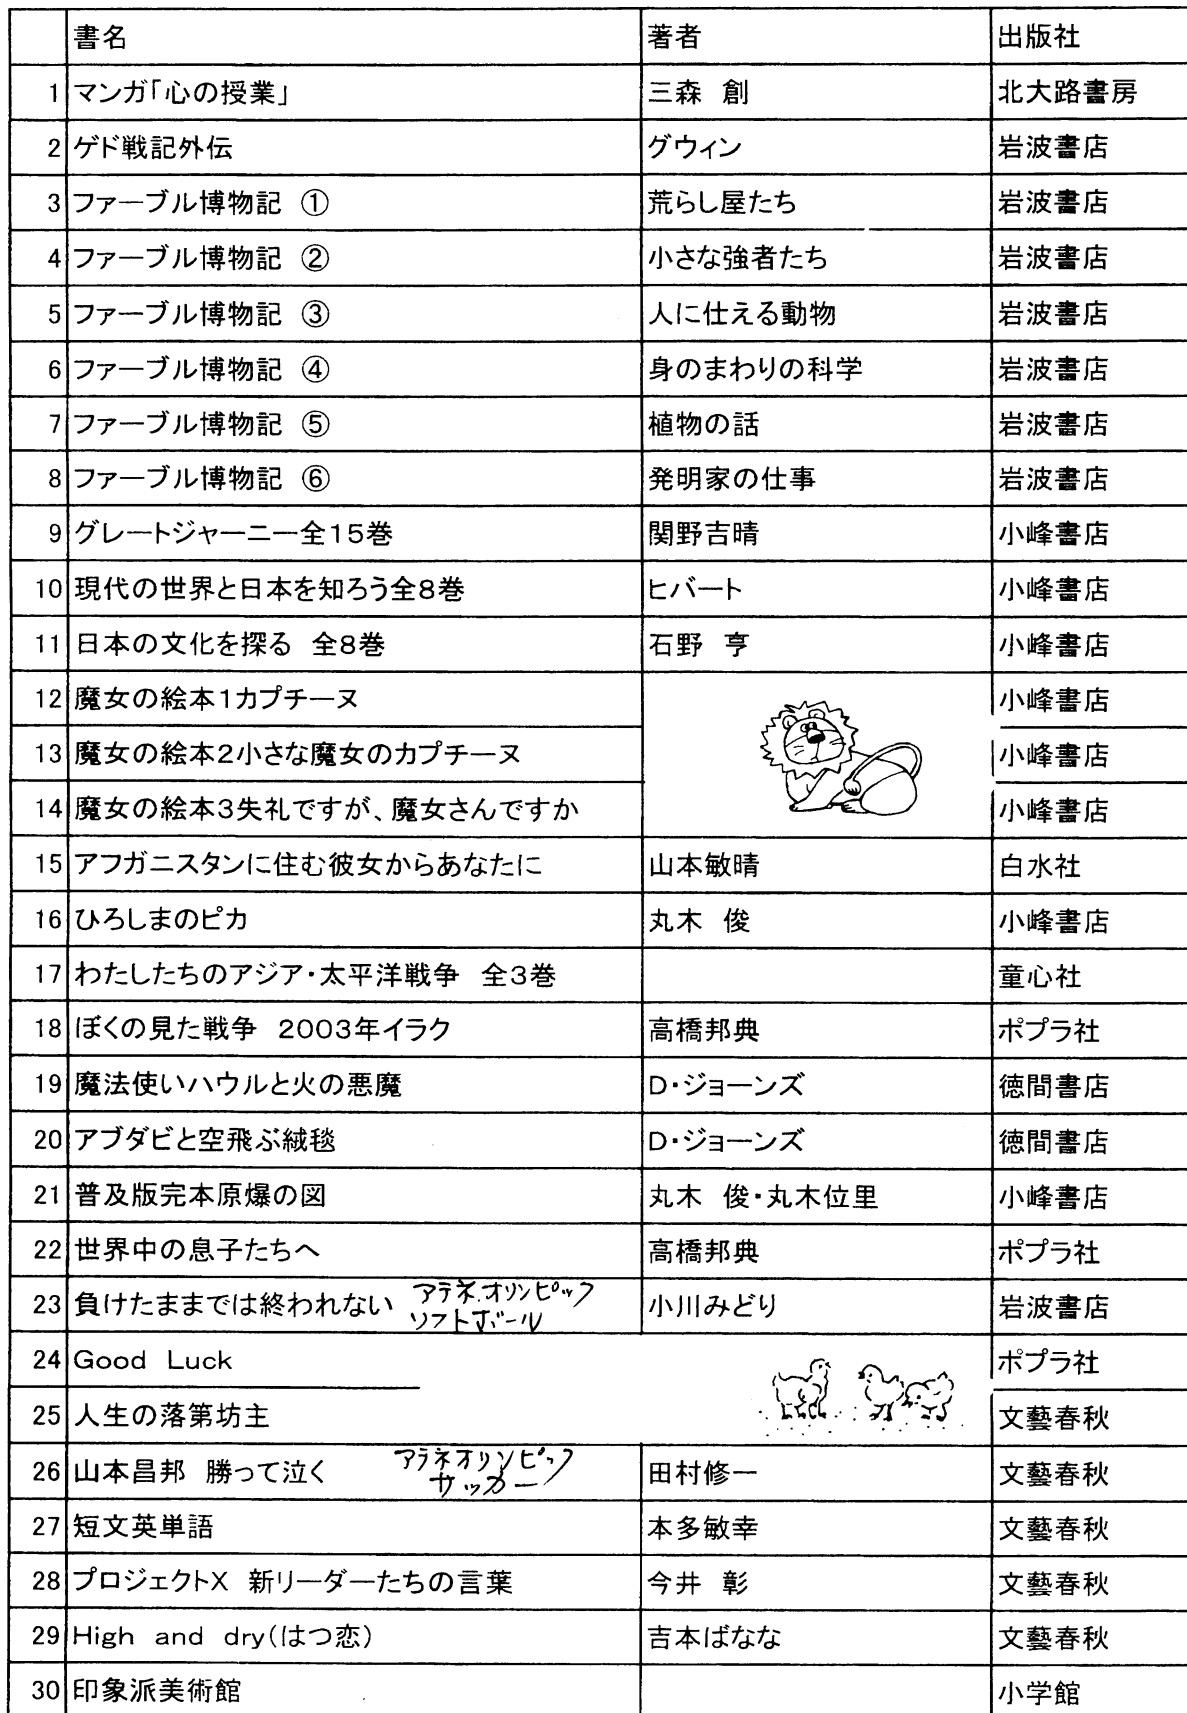 書名 著者 出版社
1 マンガ「心の授業」 三森 創 北大路書房
2 ゲド戦記外伝 グウィン 岩波書店
3 ファーブル博物記 ① 荒らし屋たち 岩波書店
4 ファーブル博物記 ② 小さな強者たち 岩波書店
5 ファーブル博物記 ③ 人に仕える動物 岩波書店
6 ファーブル博物記 ④ 身のまわりの科学 岩波書店
7 ファーブル博物記 ⑤ 植物の話 岩波書店
8 ファーブル博物記 ⑥ 発明家の仕事 岩波書店
9 グレートジャーニー全15巻 関野吉晴 小峰書店
10 現代の世界と日本を知ろう全8巻 ヒバート 小峰書店
11 日本の文化を探る 全8巻 石野 亨 小峰書店
12 魔女の絵本1カプチーヌ 小峰書店
13 魔女の絵本2小さな魔女のカプチーヌ 小峰書店
14 魔女の絵本3失礼ですが、魔女さんですか 小峰書店
15 アフガニスタンに住む彼女からあなたに 山本敏晴 白水社
16 ひろしまのピカ 丸木 俊 小峰書店
17 わたしたちのアジア・太平洋戦争 全3巻 童心社
18 ぼくの見た戦争 2003年イラク 高橋邦典 ポプラ社
19 魔法使いハウルと火の悪魔 D・ジョーンズ 徳間書店
20 アブダビと空飛ぶ絨毯 D・ジョーンズ 徳間書店
21 普及版完本原爆の図 丸木 俊・丸木位里 小峰書店
22 世界中の息子たちへ 高橋邦典 ポプラ社
23 負けたままでは終われない アテネ.オリンピック ソフトボール 小川みどり 岩波書店
24 Good Luck ポプラ社
25 人生の落第坊主 文藝春秋
26 山本昌邦 勝って泣く アテネオリンピック サッカー 田村修一 文藝春秋
27 短文英単語 本多敏幸 文藝春秋
28 プロジェクトX 新リーダーたちの言葉 今井 彰 文藝春秋
29 High and dry(はつ恋) 吉本ばなな 文藝春秋
30 印象派美術館 小学館